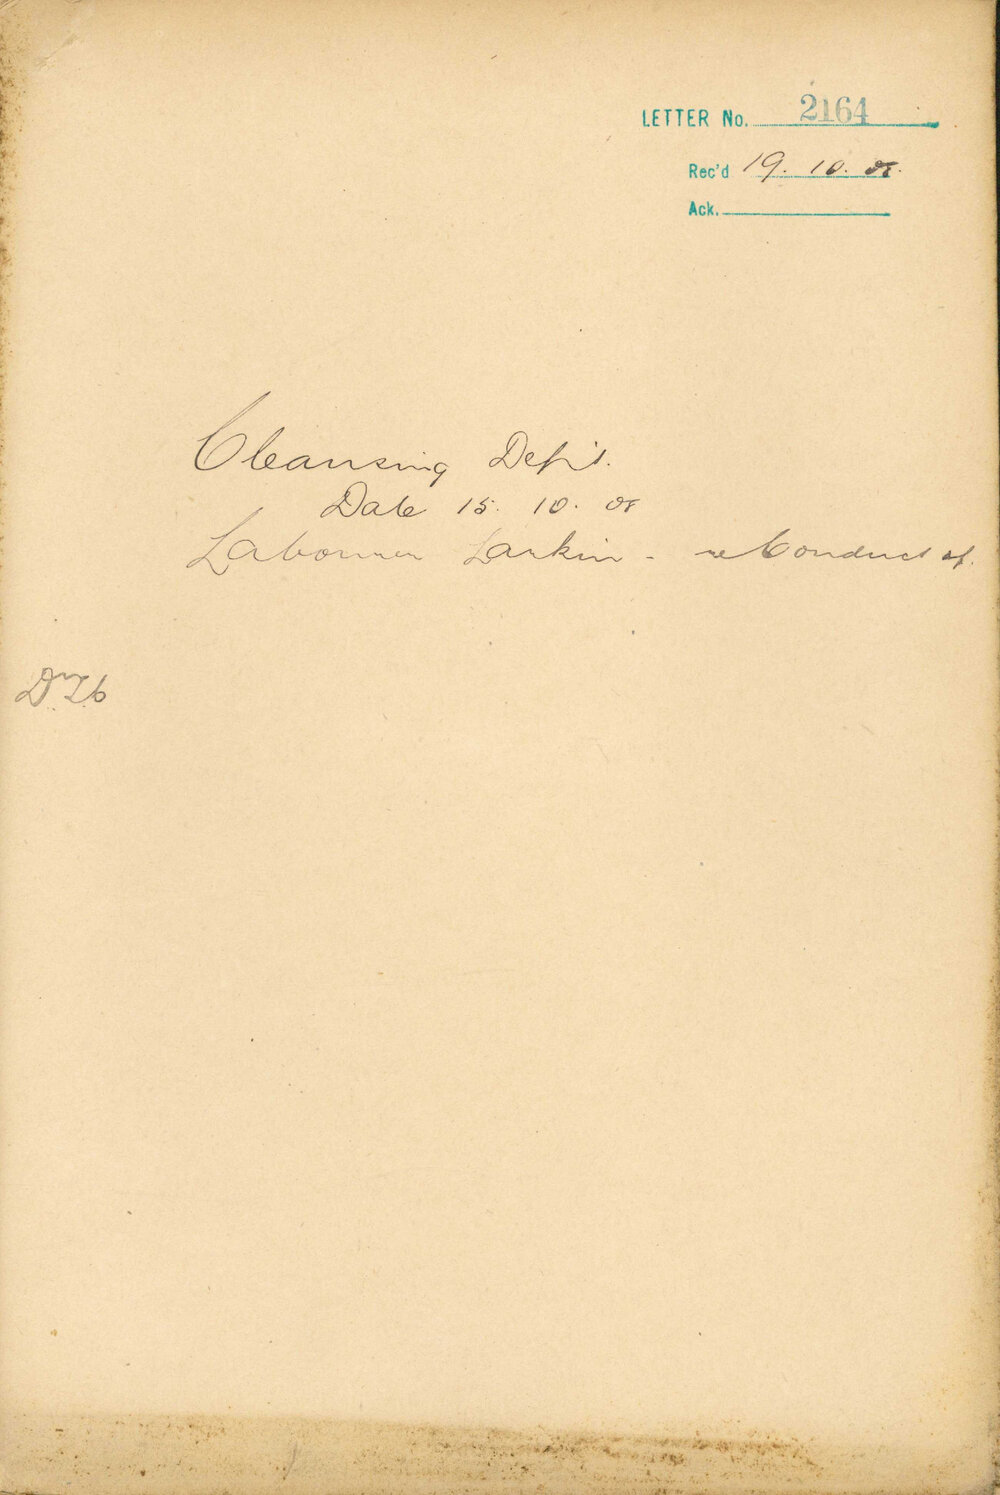 LETTER No. 2164
Rec'd 19. 10. 08.
Ack.
Cleansing Dep't.
Date 15. 10. 08
Labourer Larkin - re Conduct of.